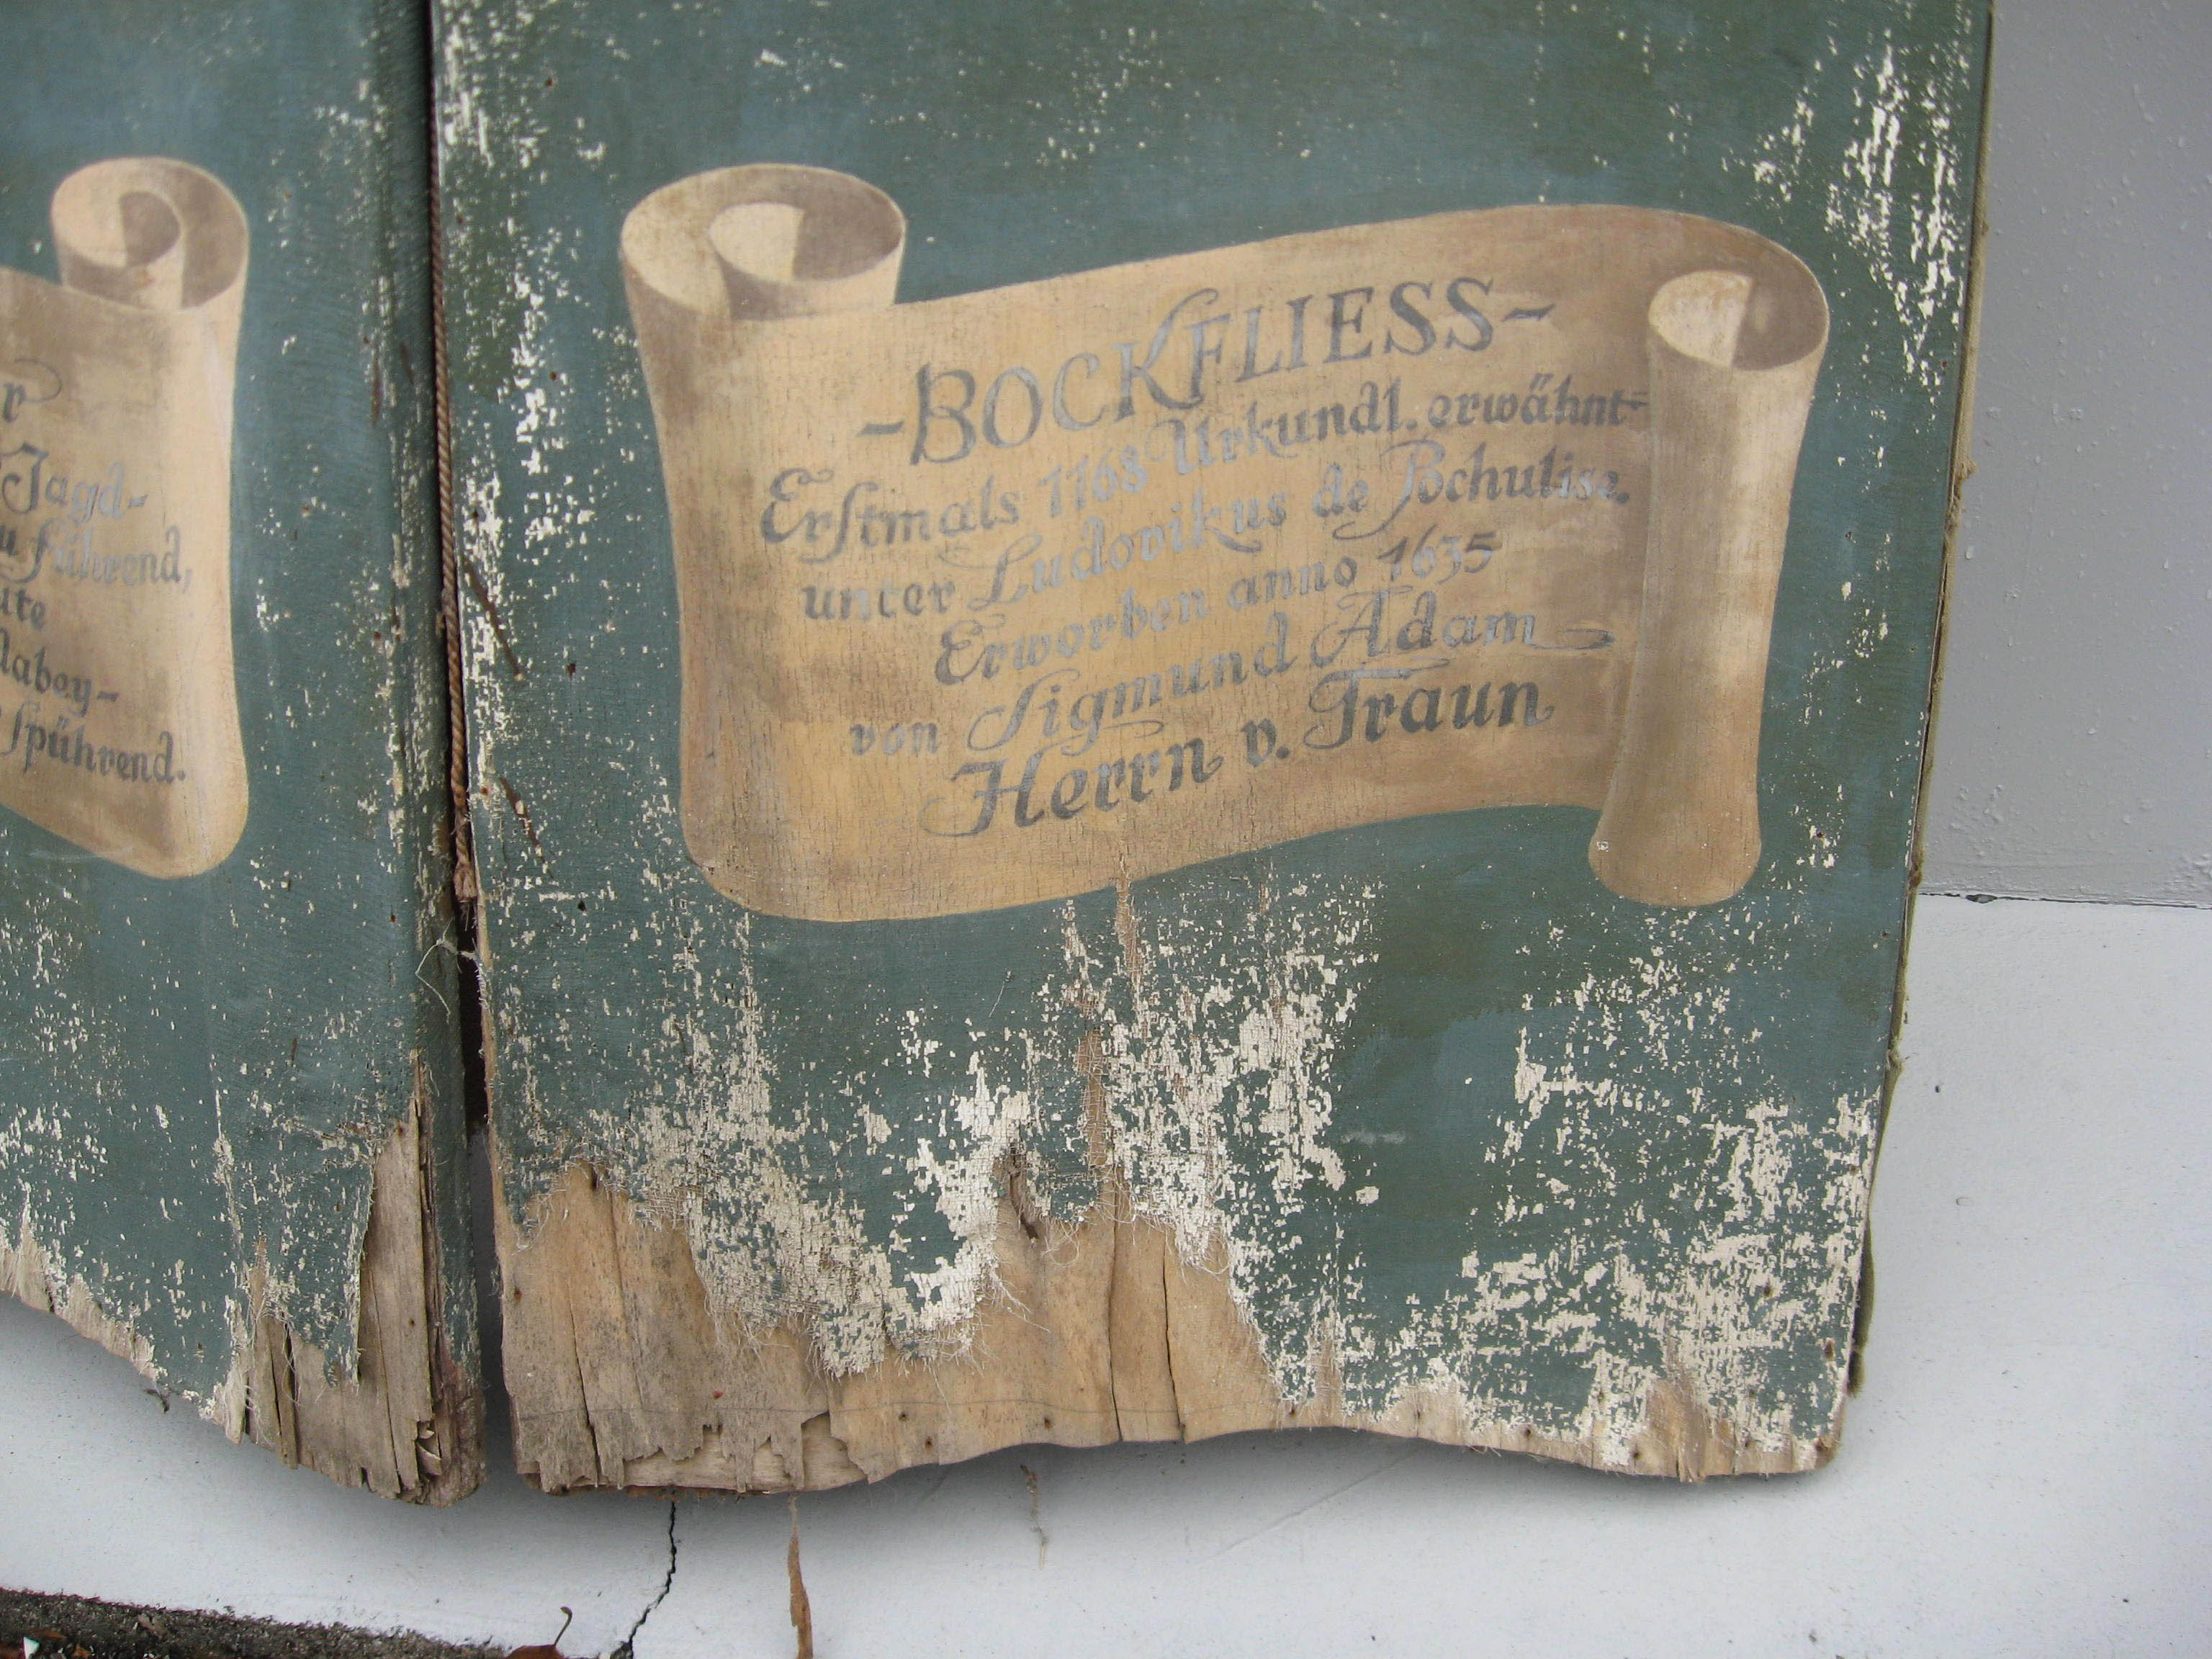 r
Jagd-
führend,
dabey-
Spührend.
-BOCKFLIESS-
Erstmals 1168 Urkundl. erwähnt
unter Ludovikus de Pochulise.
Erworben anno 1635
von Sigmund Adam
Herrn v. Traun